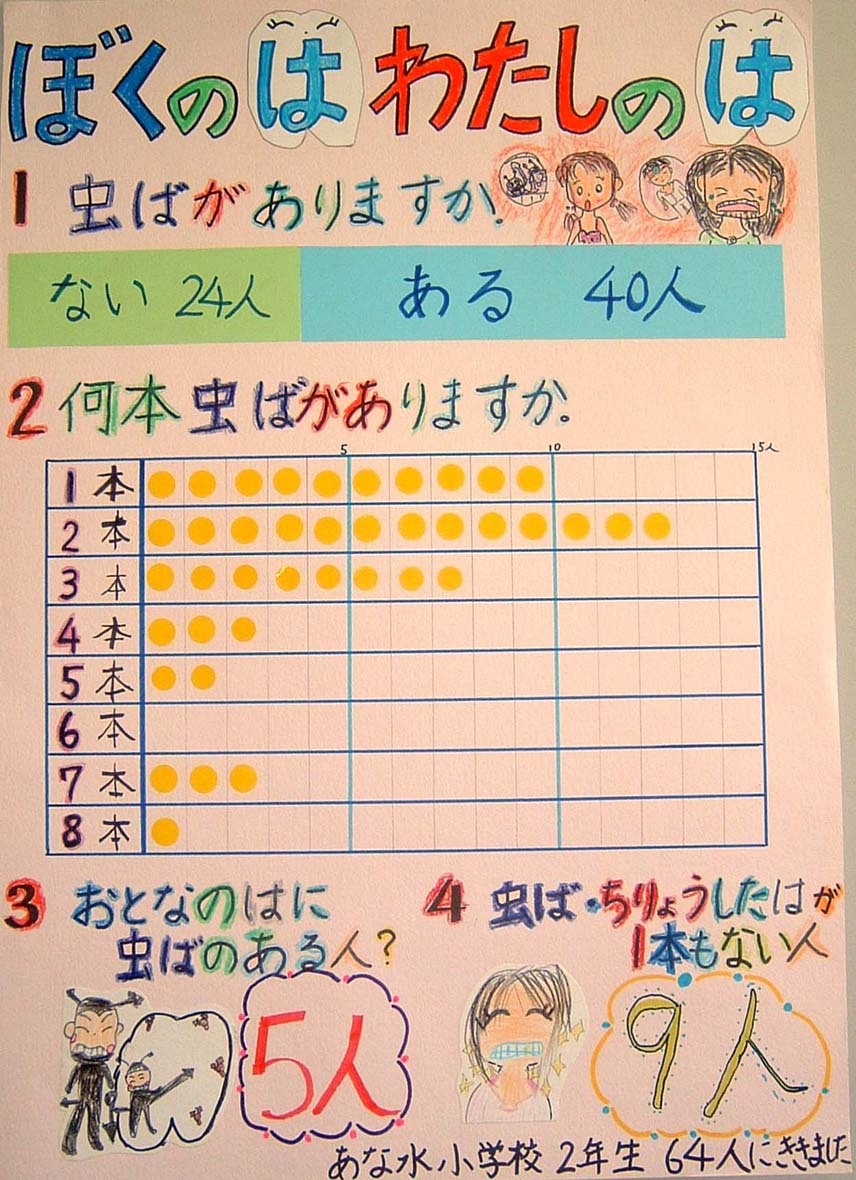 ぼくのは わたしのは
1 虫ばがありますか。
ない 24人 ある 40人
2 何本虫ばがありますか。
5 10 15人
1本
2本
3本
4本
5本
6本
7本
8本
3 おとなのはに
虫ばのある人?
5人
4 虫ば・ちりょうしたはが
1本もない人
9人
あな水小学校 2年生 64人にききました